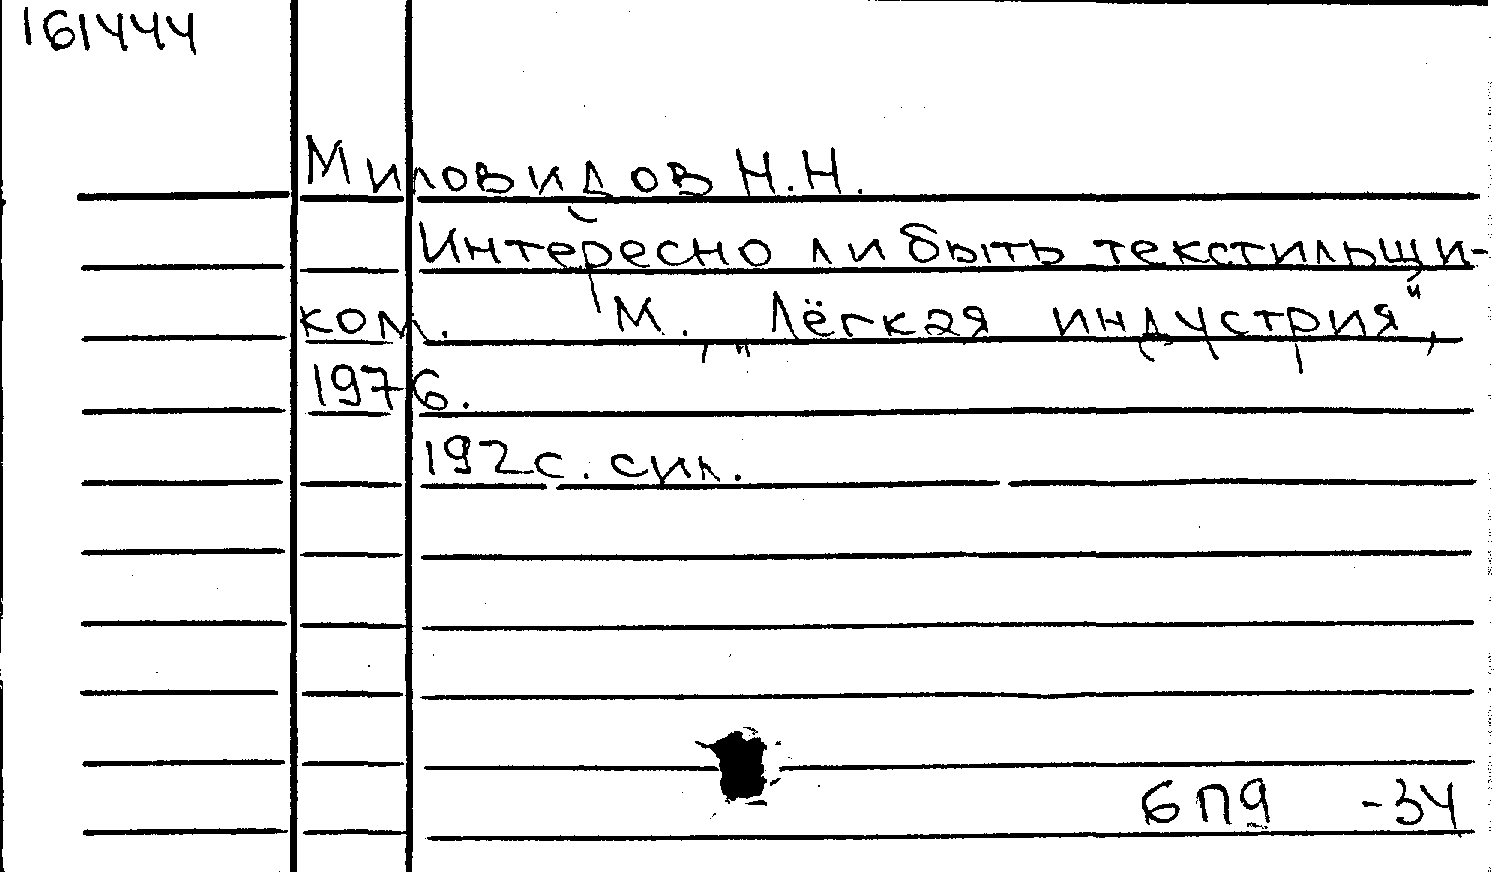 161444
Миловидов Н.Н.
Интересно ли быть текстильщи-
ком. М., „Лёгкая индустрия",
1976.
192с. сил.
6П9 -34